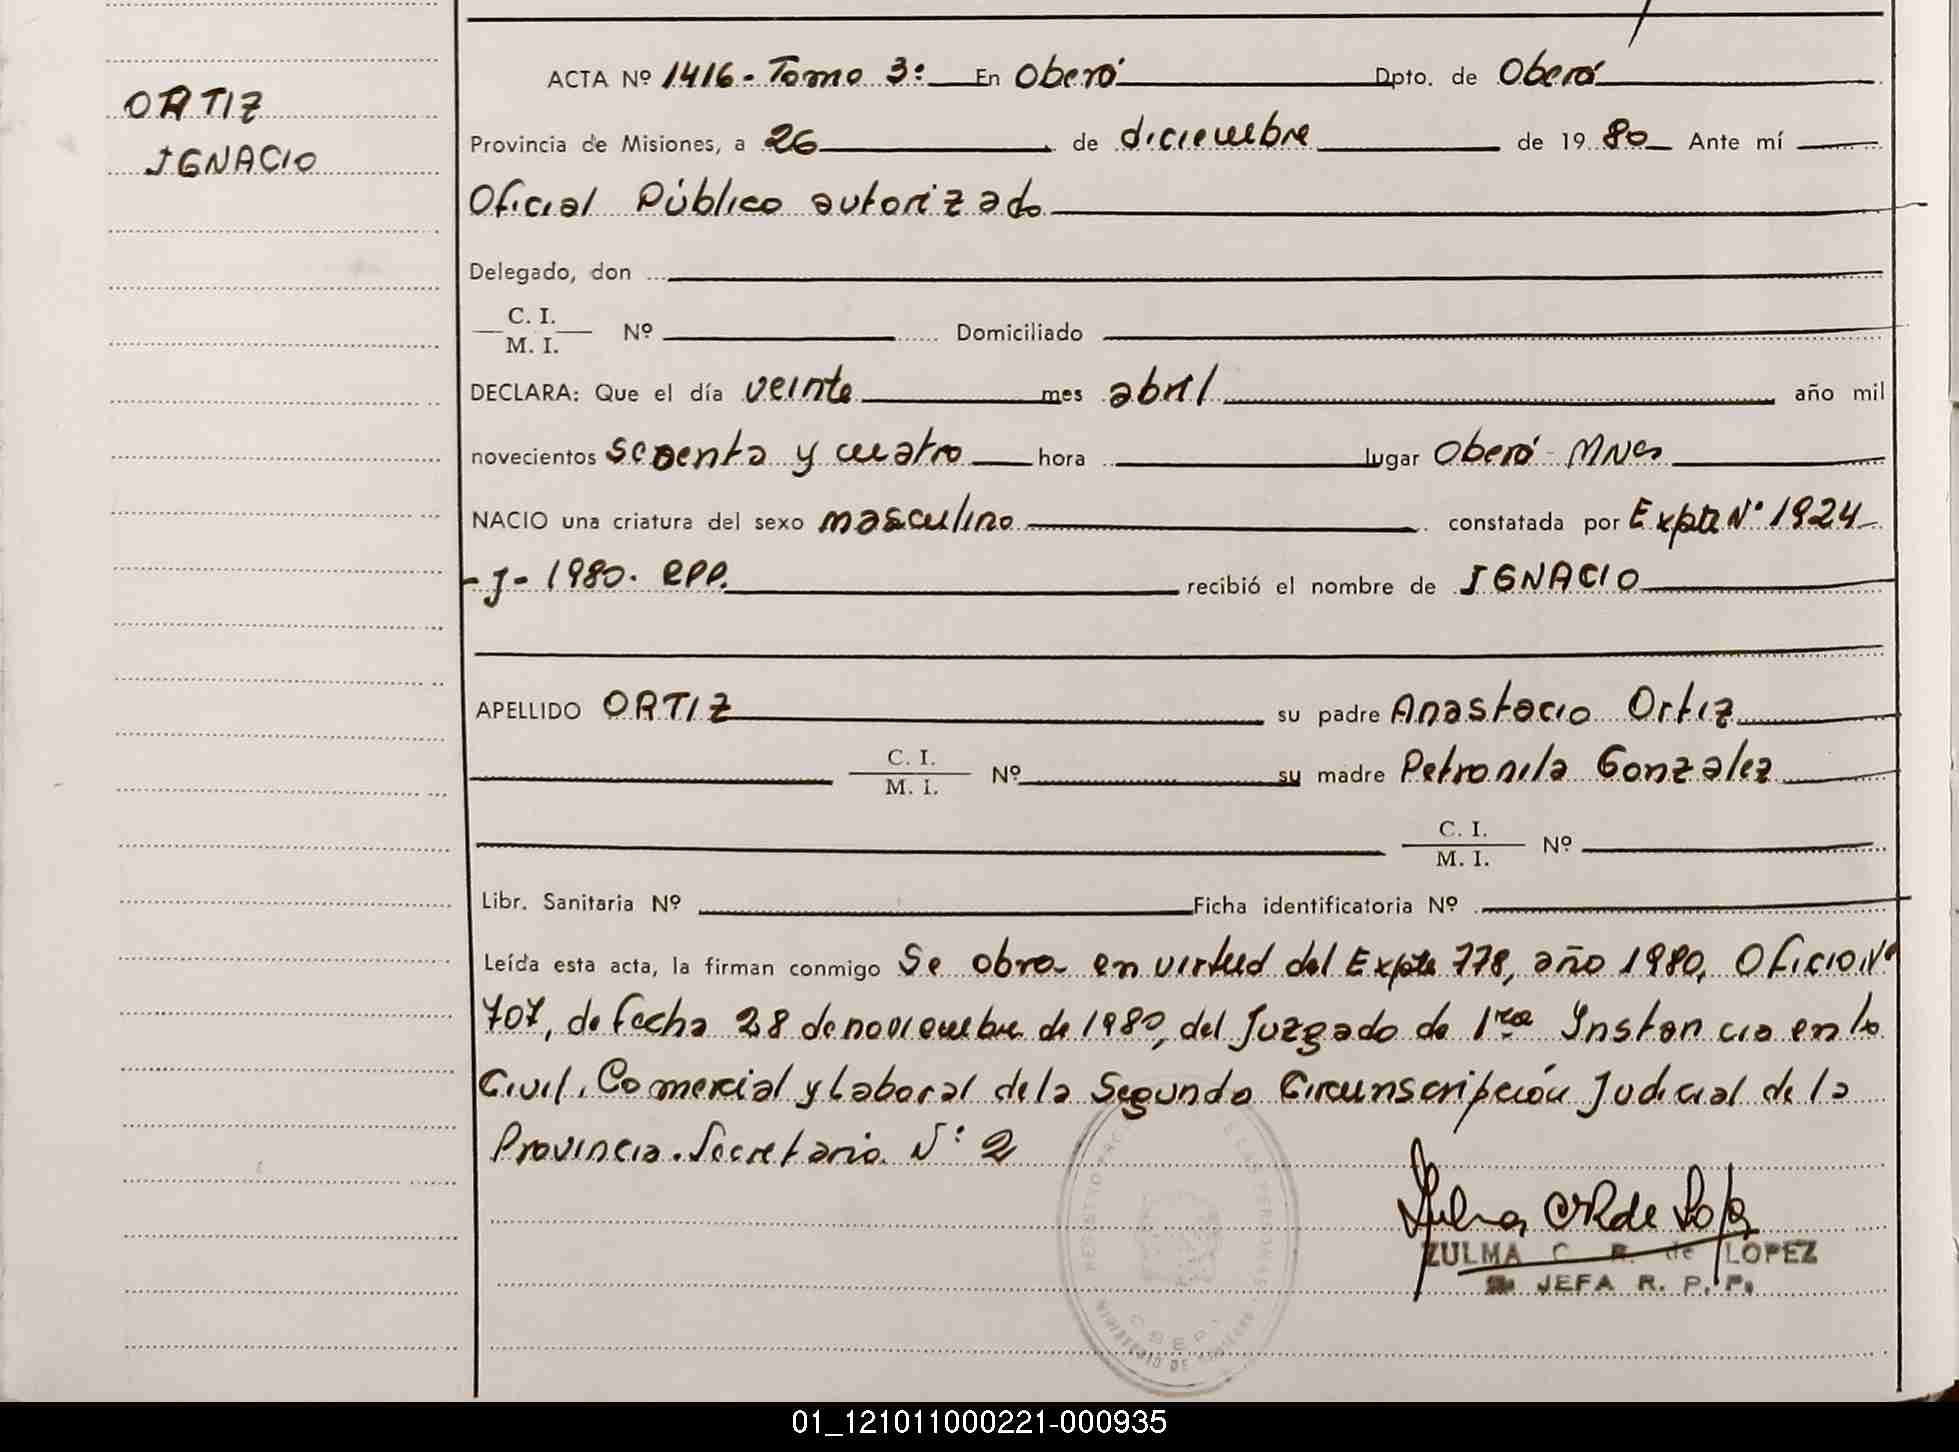 ORTIZ
IGNACIO
ACTA Nº 1416 - Tomo 3º En Oberá Dpto. de Oberá
Provincia de Misiones, a 26 de diciembre de 1980 Ante mí
Oficial Público autorizado
Delegado, don
C. I.
M. I. Nº Domiciliado
DECLARA: Que el día veinte mes abril año mil
novecientos y cuatro hora lugar Oberá - Mnes
NACIO una criatura del sexo masculino constatada por Expte Nº 1924
- J - 1980. RPP. recibió el nombre de IGNACIO
APELLIDO ORTIZ su padre Anastacio Ortiz
C. I.
M. I. Nº su madre Petronila Gonzalez
C. I.
M. I. Nº
Libr. Sanitaria Nº Ficha identificatoria Nº
Leída esta acta, la firman conmigo Se obra en virtud del Expte 778, año 1980, Oficio Nº
707, de fecha 28 de noviembre de 1980, del Juzgado de 1ra Instancia en lo
Civil, Comercial y Laboral de la Segunda Circunscripción Judicial de la
Provincia. Secretaria Nº 2
ZULMA C. R. de LOPEZ
JEFA R. P. P.
OBERA
MINISTERIO DE GOBIERNO
01_121011000221-000935